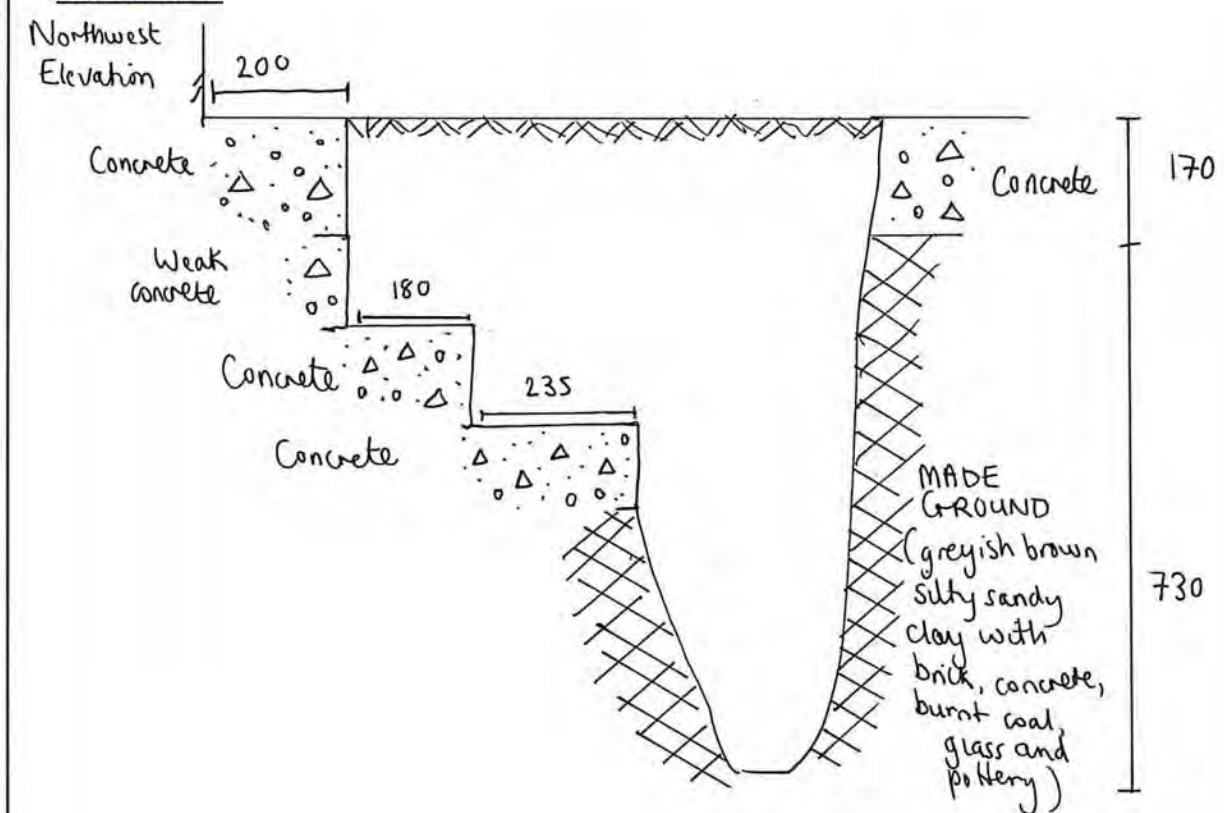 Northwest
Elevation
200
Concrete
Concrete
170
Weak
concrete
180
Concrete
235
Concrete
MADE
GROUND
(greyish brown
silty sandy
clay with
brick, concrete,
burnt coal,
glass and
pottery)
730